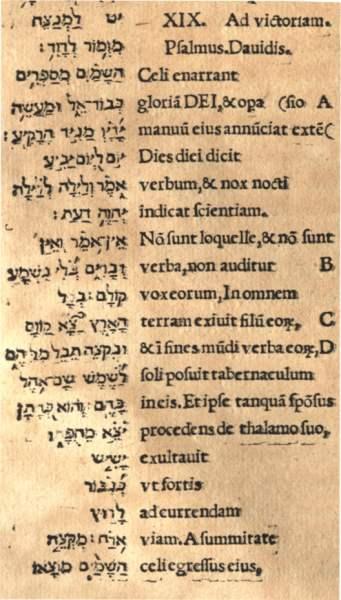 יט לַמְנַצֵּחַ
מִזְמוֹר לְדָוִד:
הַשָּׁמַיִם מְסַפְּרִים
כְּבוֹד־אֵל וּמַעֲשֵׂה
יָדָיו מַגִּיד הָרָקִיעַ:
יוֹם לְיוֹם יַבִּיעַ
אֹמֶר וְלַיְלָה לְּלַיְלָה
יְחַוֶּה דָּעַת:
אֵין־אֹמֶר וְאֵין
דְּבָרִים בְּלִי נִשְׁמָע
קוֹלָם: בְּכָל
הָאָרֶץ יָצָא קַוָּם
וּבִקְצֵה תֵבֵל מִלֵּיהֶם
לַשֶּׁמֶשׁ שָׂם־אֹהֶל
בָּהֶם: וְהוּא כְּחָתָן
יֹצֵא
יָשִׂישׂ
כְּגִבּוֹר
לָרוּץ
אֹרַח: מִקְצֵה
הַשָּׁמַיִם מוֹצָאוֹ
XIX. Ad victoriam.
Psalmus. Dauidis.
Celi enarrant
gloriã DEI, & opa (sio A
manuũ eius annũciat extẽ(
Dies diei dicit
verbum, & nox nocti
indicat scientiam.
Nõ sunt loquelle, & nõ sunt
verba, non auditur B
vox eorum, In omnem
terram exiuit filũ eoꝝ, C
& ĩ fines mũdi verba eoꝝ, D
soli posuit tabernaculum
in eis. Et ipse tanquã spõsus
procedens de thalamo suo,
exultauit
vt fortis
ad currendam
viam. A summitate
celi egressus eius,